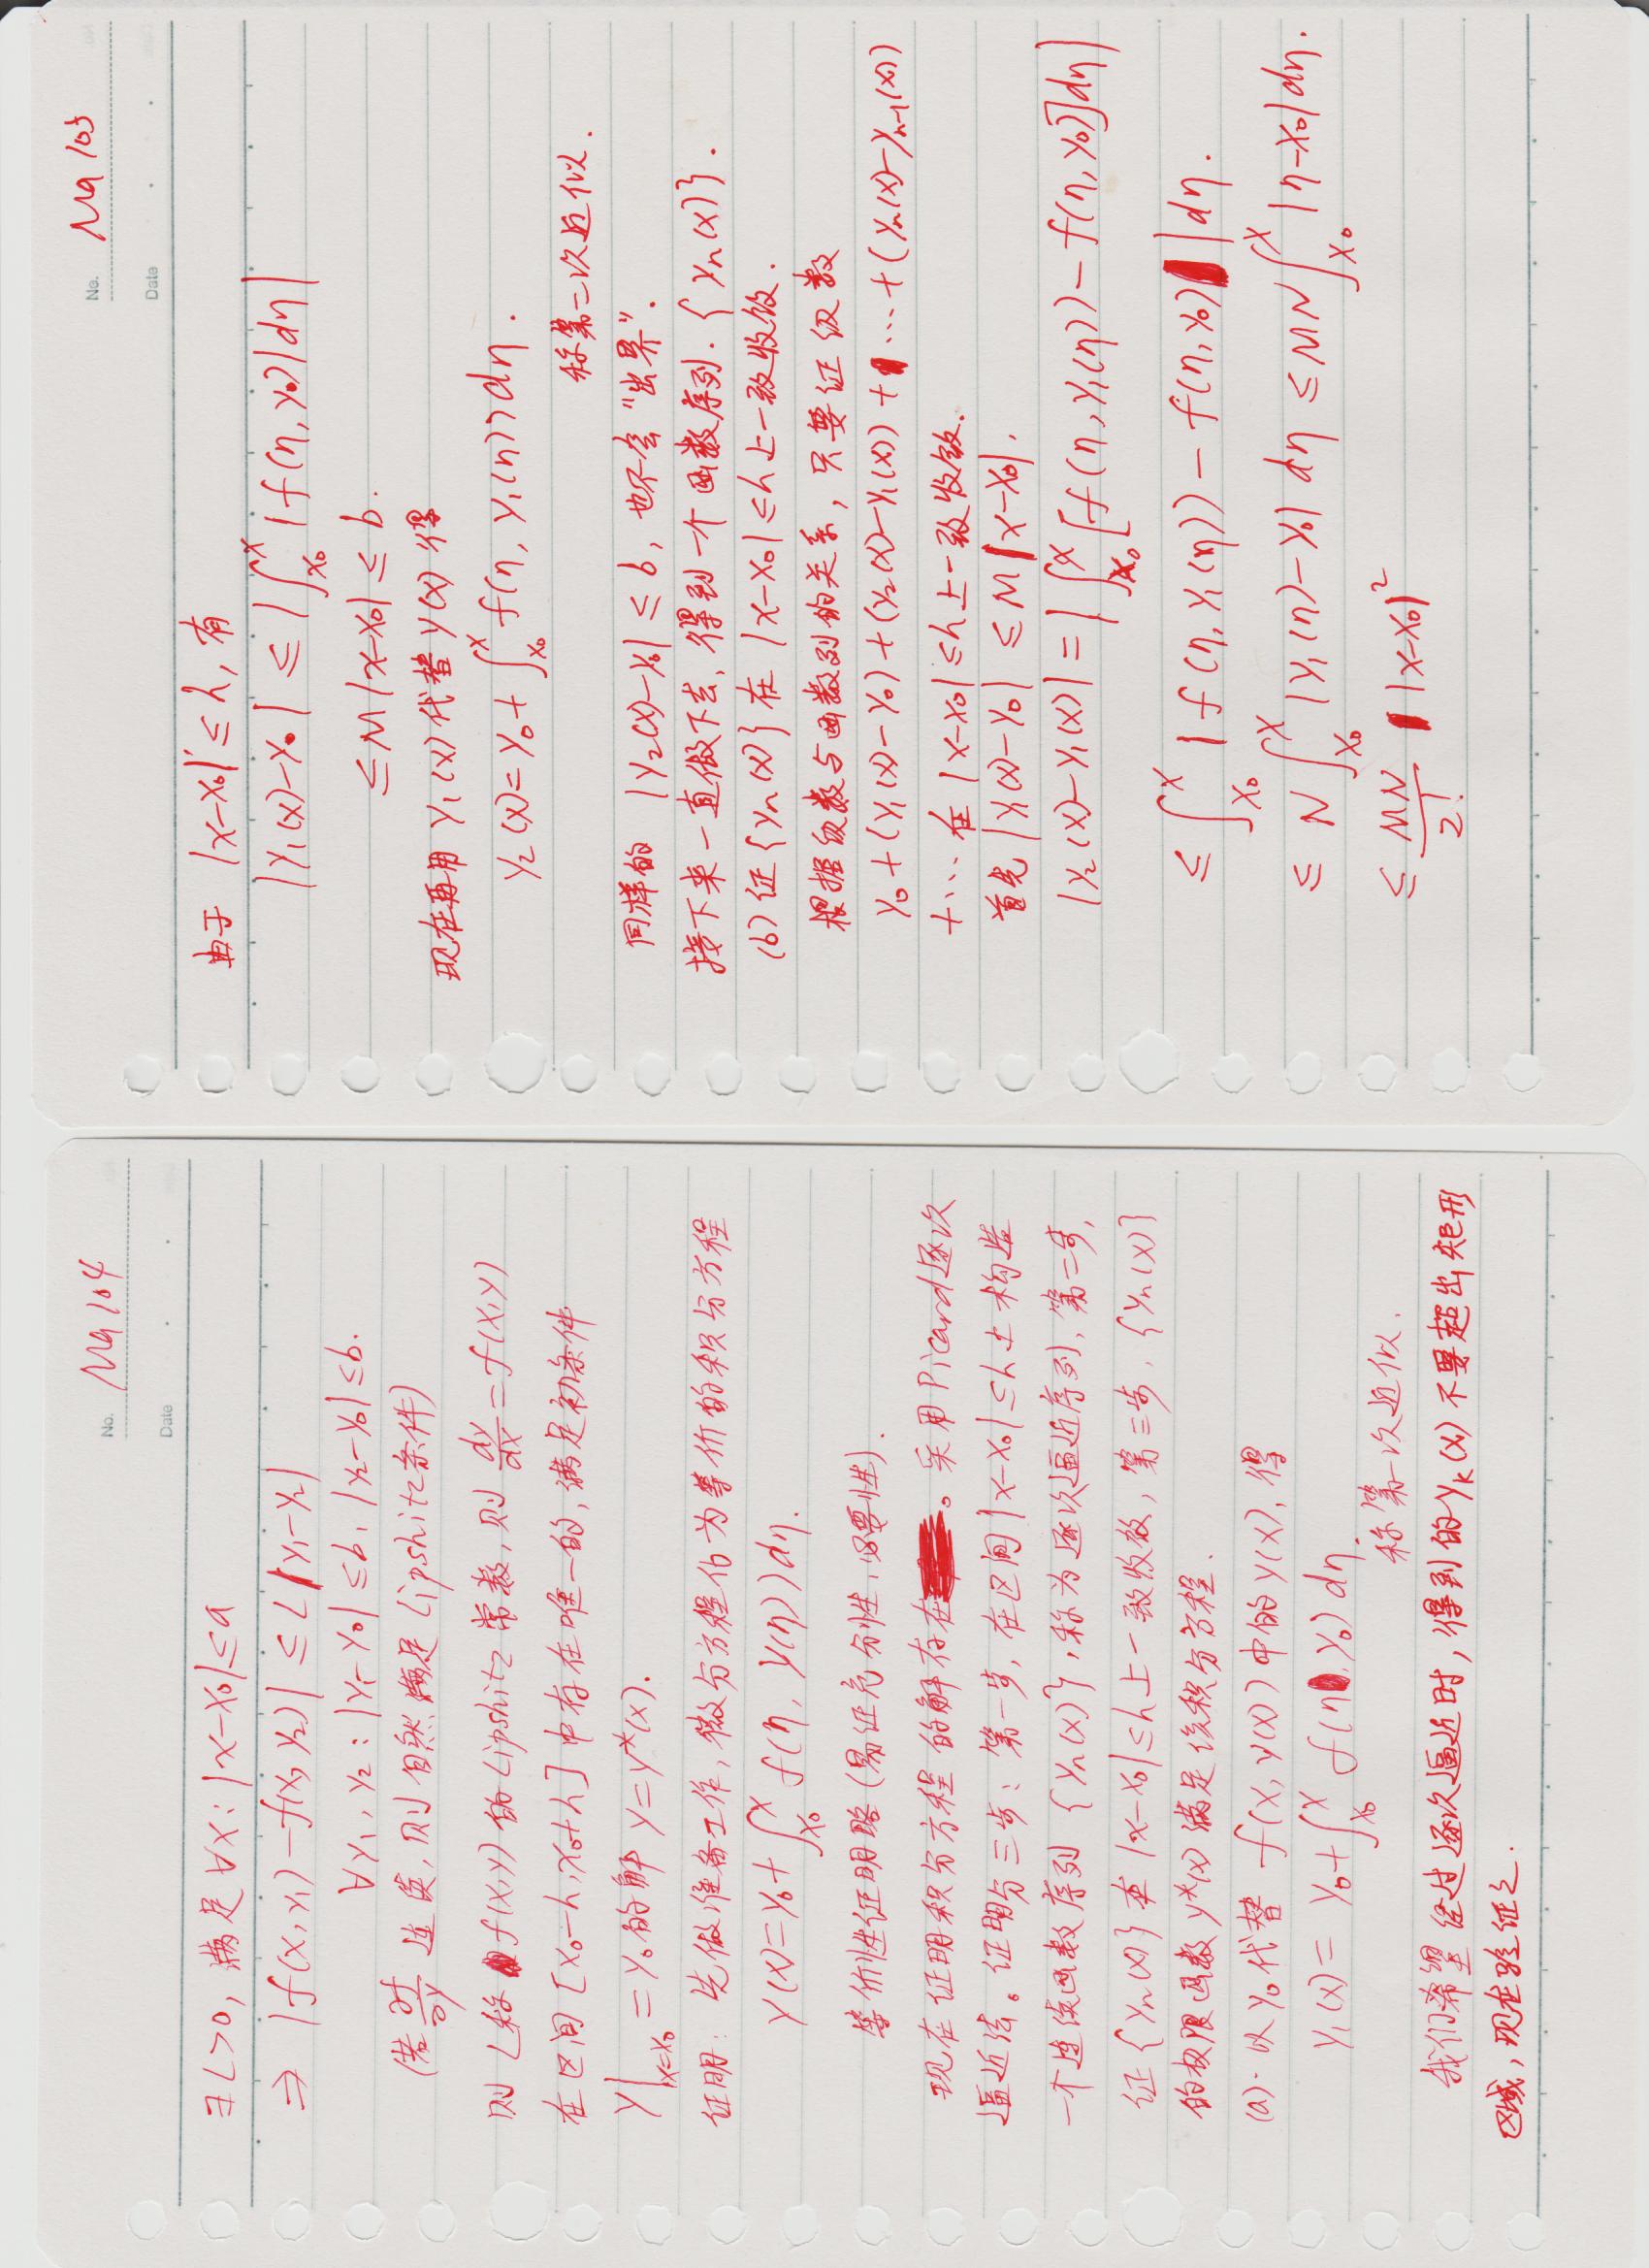 No. Ma 104
Date
∃L>0, 满足∀x: |x-x₀|≤a
⇒ |f(x,y₁)-f(x,y₂)| ≤ L|y₁-y₂|
∀y₁, y₂: |y₁-y₀|≤b, |y₂-y₀|≤b.
(若 ∂f/∂y 连续, 则自然满足Lipshitz条件)
则L称 f(x,y) 的Lipshitz常数, 则 dy/dx = f(x,y)
在区间 [x₀-h, x₀+h] 中存在唯一的, 满足初条件
y|ₓ₌ₓ₀ = y₀ 的解 y=y*(x).
证明: 先做准备工作, 微分方程化为等价的积分方程
y(x)=y₀+∫_{x₀}^{x} f(η, y(η))dη.
等价性证明略 (易证充分性, 必要性).
现在证明积分方程的解存在。采用Picard逐次
逼近法。证明分三步: 第一步, 在区间|x-x₀|≤h上构造
一个连续函数序列 {yₙ(x)}, 称为逐次逼近序列, 第二步,
证{yₙ(x)}在|x-x₀|≤h上一致收敛, 第三步, {yₙ(x)}
的极限函数y*(x)满足该积分方程.
(a). 以y₀代替 f(x, y(x))中的y(x), 得
y₁(x)= y₀+∫_{x₀}^{x} f(η, y₀) dη.
称第一次近似.
我们希望经过逐次逼近时, 得到的yₖ(x)不要超出矩形
区域, 现在验证之.
No. Ma 105
Date
由于 |x-x₀|≤h, 有
|y₁(x)-y₀| ≤ |∫_{x₀}^{x} |f(η, y₀)|dη|
≤M|x-x₀| ≤ b.
现在再用y₁(x)代替y(x)得
y₂(x)=y₀+∫_{x₀}^{x} f(η, y₁(η))dη.
称第二次近似.
同样的 |y₂(x)-y₀| ≤ b, 也不会"出界".
接下来一直做下去, 得到一个函数序列. {yₙ(x)}.
(b) 证{yₙ(x)}在 |x-x₀|≤h上一致收敛.
根据级数与函数列的关系, 只要证级数
y₀+(y₁(x)-y₀)+(y₂(x)-y₁(x))+ ⋯ +(yₙ(x)-yₙ₋₁(x))
+⋯ 在 |x-x₀|≤h上一致收敛.
首先 |y₁(x)-y₀| ≤M|x-x₀|.
|y₂(x)-y₁(x)|=|∫_{x₀}^{x} [f(η, y₁(η))-f(η, y₀)]dη|
≤ ∫_{x₀}^{x} |f(η, y₁(η))-f(η, y₀)|dη.
≤ N∫_{x₀}^{x} |y₁(η)-y₀| dη ≤MN∫_{x₀}^{x} |η-x₀|dη.
≤ MN/2! |x-x₀|²